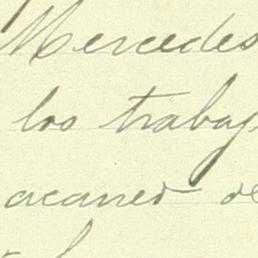 Mercedes
los trabaj
acaned de